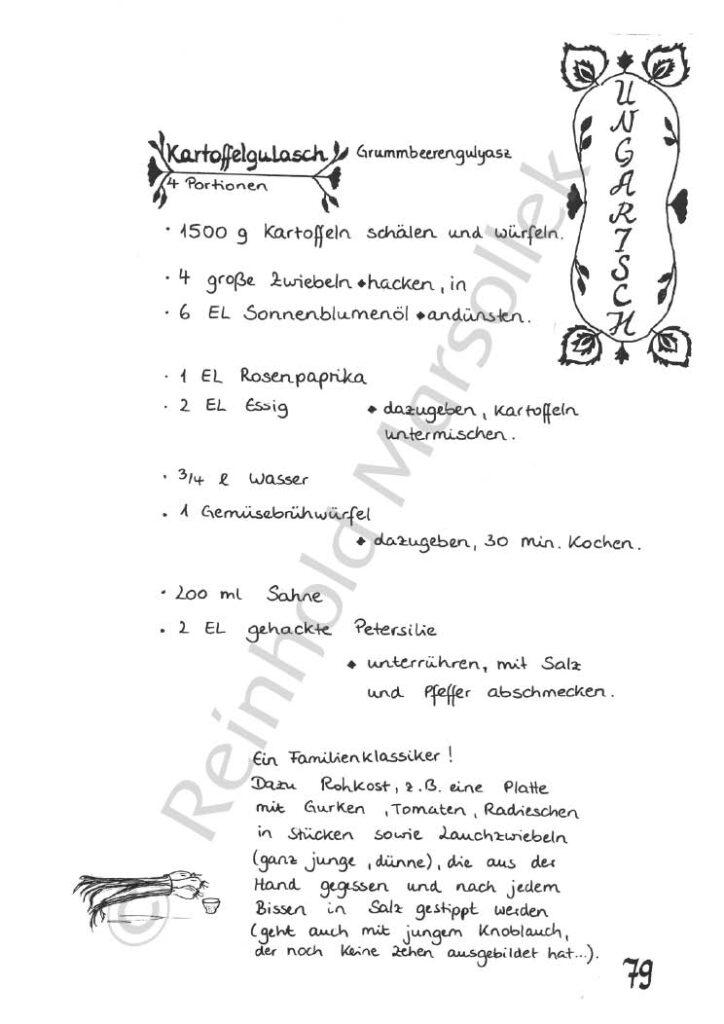 UNGARISCH
Kartoffelgulasch Grummbeerengulyasz
4 Portionen
· 1500 g Kartoffeln schälen und würfeln.
· 4 große Zwiebeln ◆hacken, in
· 6 EL Sonnenblumenöl ◆andünsten.
· 1 EL Rosenpaprika
· 2 EL Essig ◆ dazugeben, Kartoffeln
untermischen.
· 3/4 l Wasser
· 1 Gemüsebrühwürfel
◆ dazugeben, 30 min. Kochen.
· 200 ml Sahne
· 2 EL gehackte Petersilie
◆ unterrühren, mit Salz
und Pfeffer abschmecken.
Ein Familienklassiker!
Dazu Rohkost, z.B. eine Platte
mit Gurken, Tomaten, Radieschen
in Stücken sowie Lauchzwiebeln
(ganz junge, dünne), die aus der
Hand gegessen und nach jedem
Bissen in Salz gestippt werden
(geht auch mit jungem Knoblauch,
der noch keine Zehen ausgebildet hat...).
79
© Reinhold Marsollek